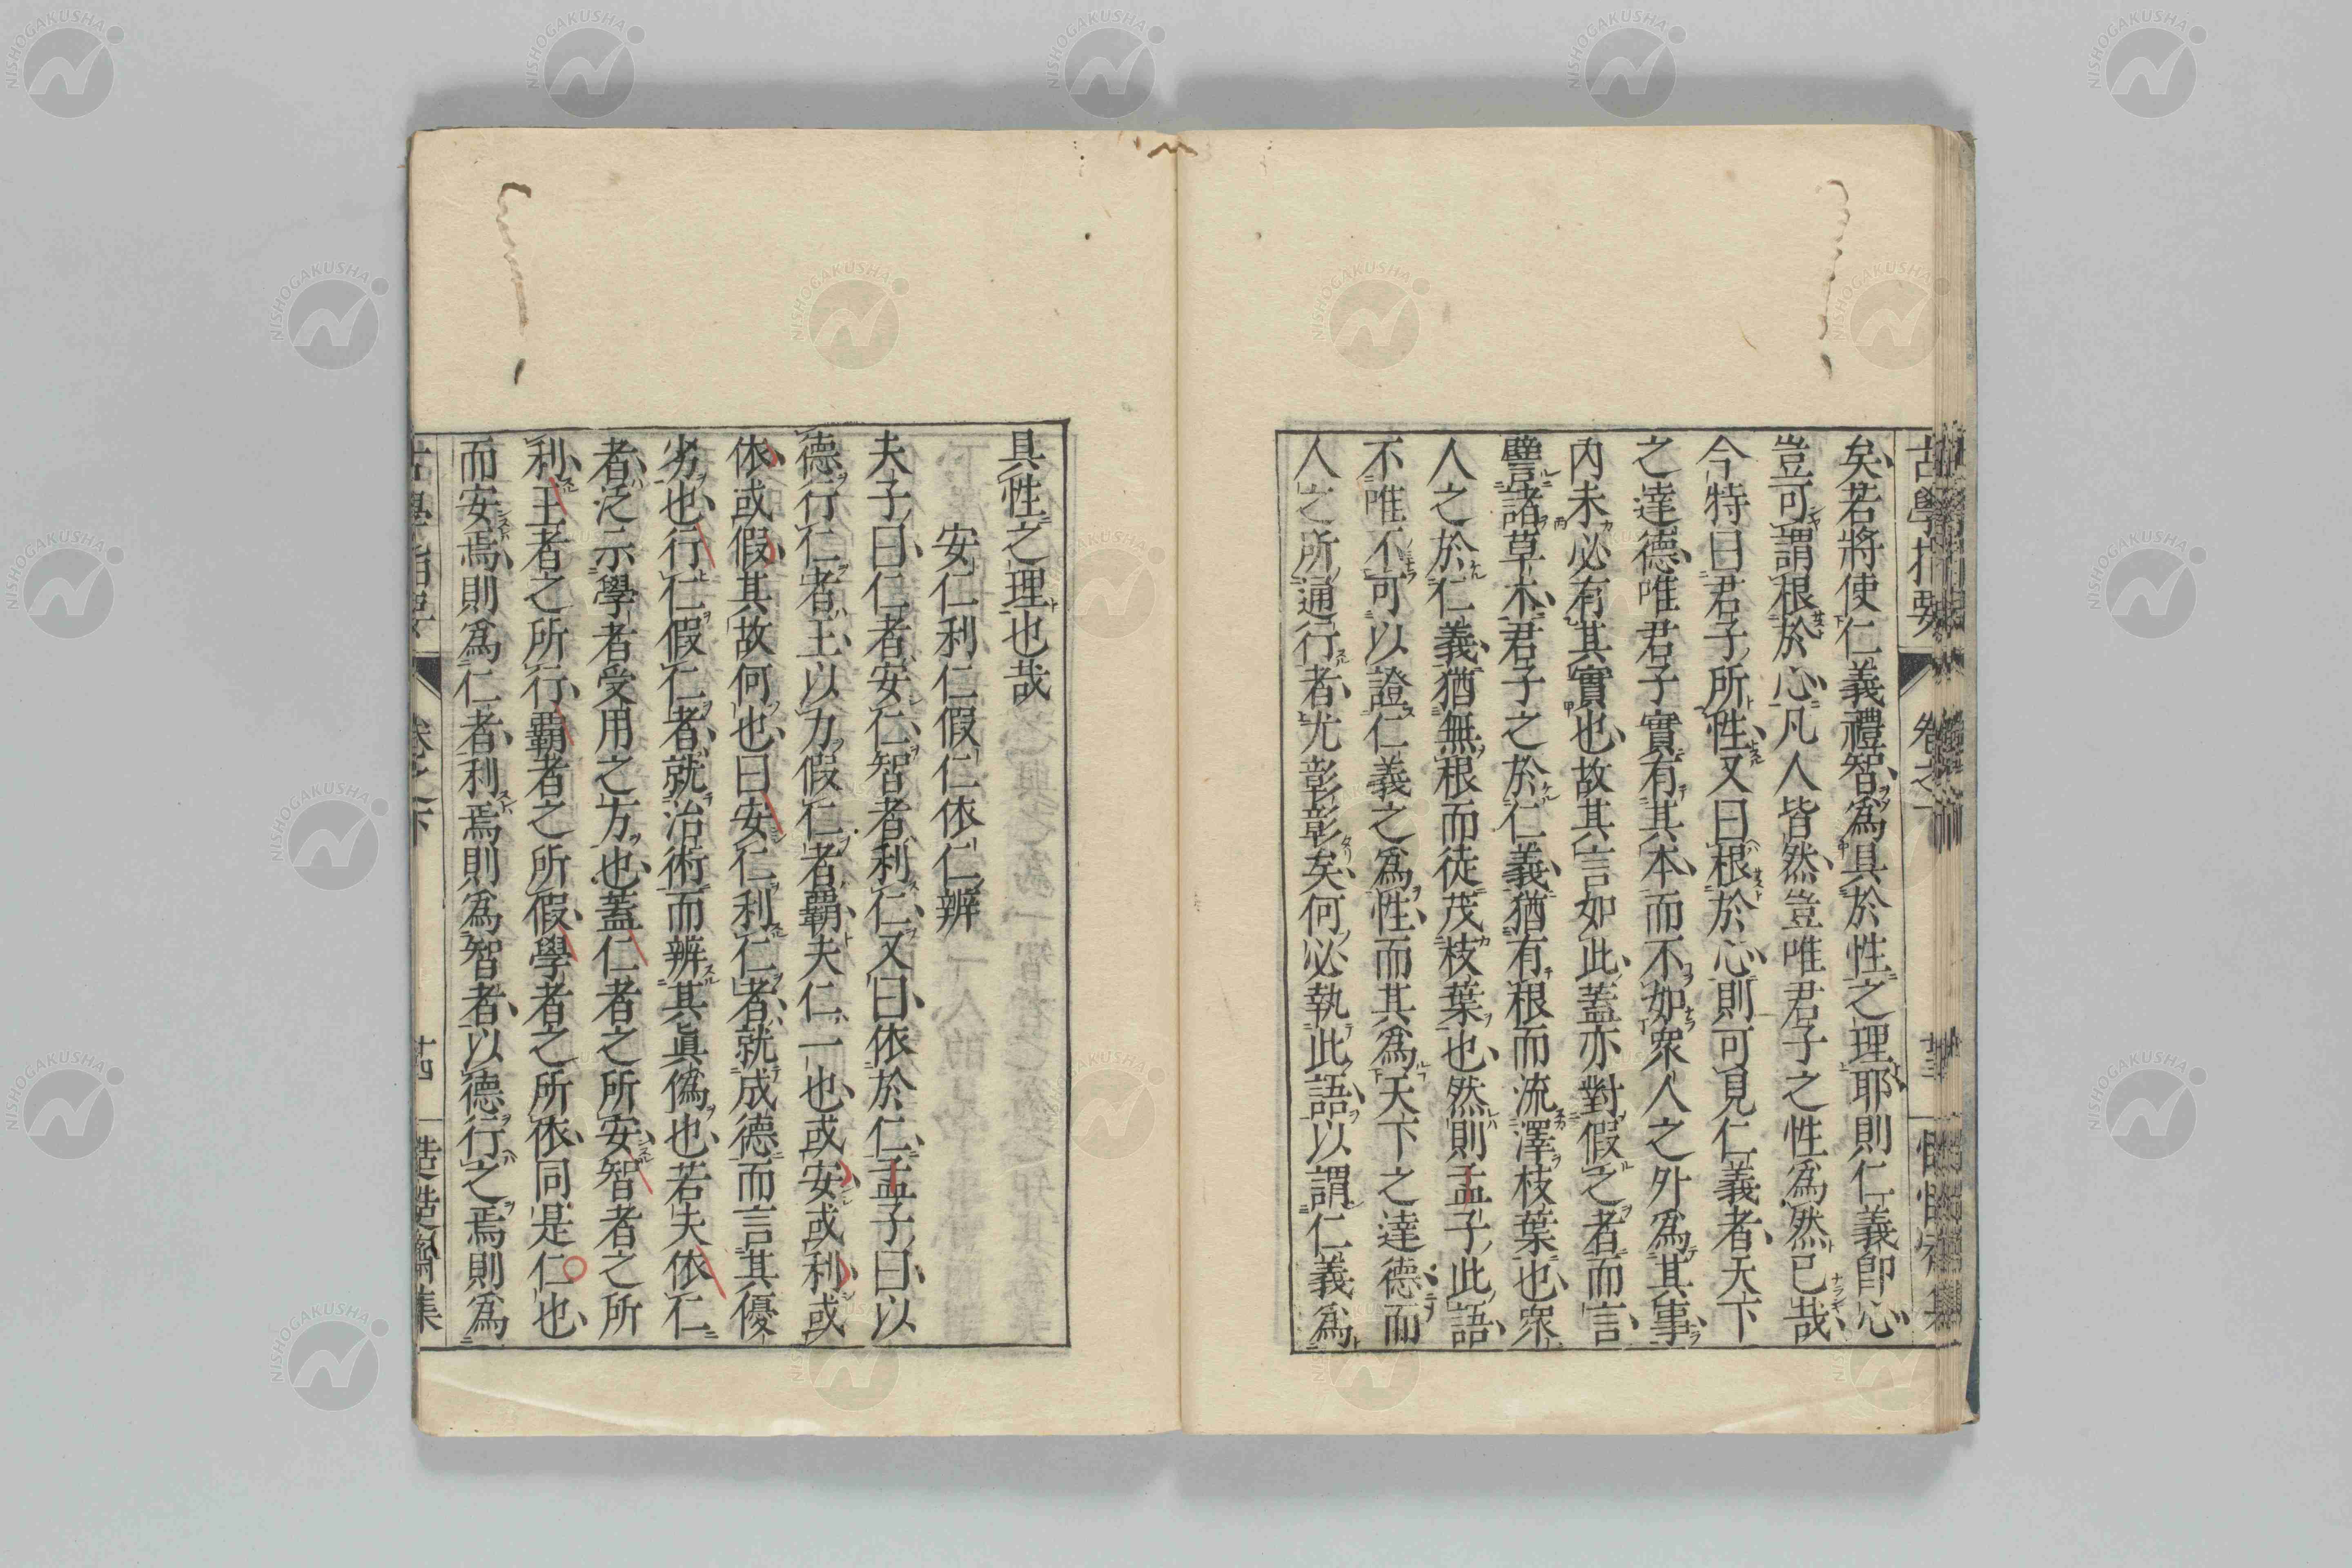 古學指要 卷之下
矣若將使仁義禮智爲具於性之理耶則仁義卽心
豈可謂根於心凡人皆然豈唯君子之性爲然已哉
今特曰君子所性又曰根於心則可見仁義者天下
之達德唯君子實有其本而不如衆人之外爲其事
內未必有其實也故其言如此蓋亦對假之者而言
譬諸草木君子之於仁義猶有根而流澤枝葉也衆
人之於仁義猶無根而徒茂枝葉也然則孟子此語
不唯不可以證仁義之爲性而其爲天下之達德而
人之所通行者尤彰彰矣何必執此語以謂仁義爲
具性之理也哉
安仁利仁假仁依仁辨
夫子曰仁者安仁智者利仁又曰依於仁孟子曰以
德行仁者王以力假仁者霸夫仁一也或安或利或
依或假其故何也曰安仁利仁者就成德而言其優
劣也行仁假仁者就治術而辨其眞僞也若夫依仁
者泛示學者受用之方也蓋仁者之所安智者之所
利王者之所行霸者之所假學者之所依同是仁也
而安焉則爲仁者利焉則爲智者以德行之焉則爲
古學指要 卷之下 廿四
NISHOGAKUSHA